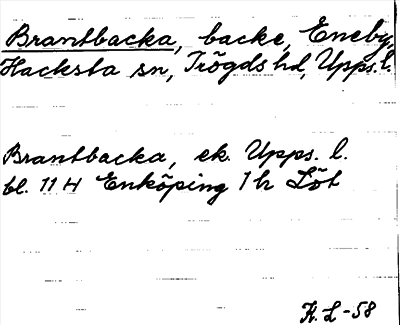 Brantbacka, backe, Eneby,
Hacksta sn, Trögds hd, Upps. l.
Brantbacka, ek. Upps. l.
bl. 11 H Enköping 1 h Löt
K. L -58